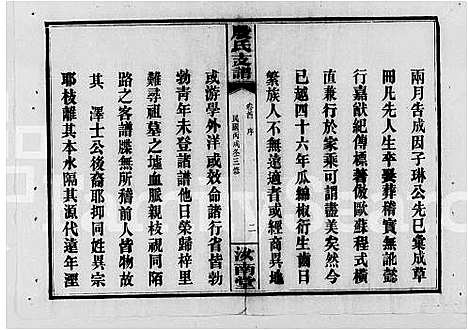 兩月告成因子琳公先已彙成草
冊凡先人生卒娶葬稽實無訛懿
行嘉猷紀傳標著倣歐蘇程式橫
直兼行於家乘可謂盡美矣然今
已越四十六年瓜緜椒衍生齒日
繁族人不無遠適者或經商異地
氏支譜
卷首 序 二
民國丙戌冬三修
汝南堂
或游學外洋或效命譜行省皆勃
勃青年未登諸譜他日榮歸梓里
難尋祖墓之墟血脈親枝視同陌
路之客譜牒無所稽前人皆物故
其 澤士公後裔耶抑同姓異宗
耶枝離其本水隔其源代遠年湮